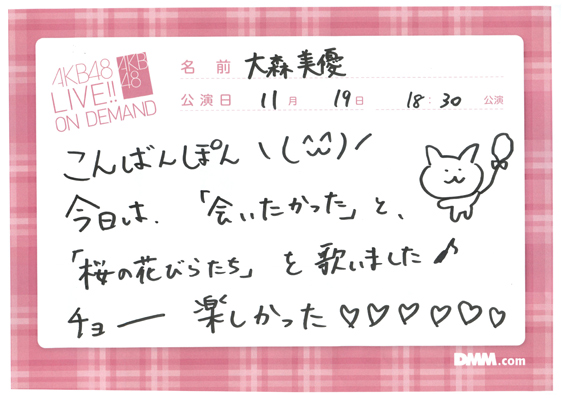 AKB48
LIVE!!
ON DEMAND
AKB
48
名前 大森美優
公演日 11月 19日 18:30 公演
こんばんぽん ヽ(^^)ノ
今日は、「会いたかった」と、
「桜の花びらたち」を歌いました♪
チョー 楽しかった♡♡♡♡♡♡
DMM.com